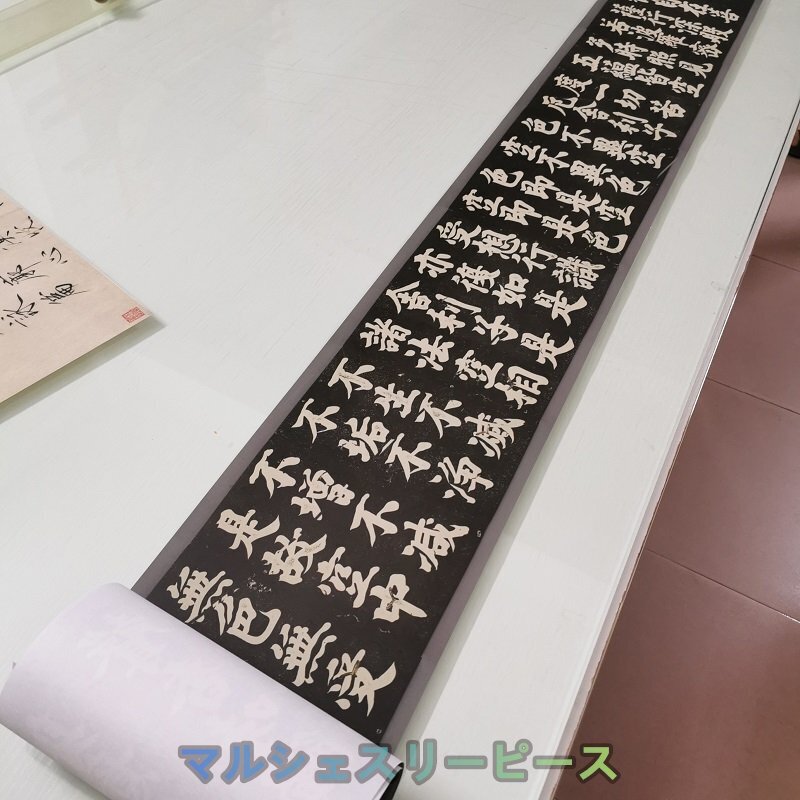 在菩
薩行深般
若波羅蜜
多時照見
五蘊皆空
度一切苦
厄舍利子
色不異空
空不異色
色即是空
空即是色
受想行識
亦復如是
舍利子是
諸法空相
不生不滅
不垢不淨
不增不減
是故空中
無色無受
マルシェスリーピース